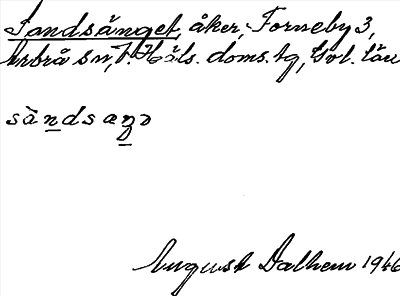 Sandsänget, åker, Forneby 3,
Arbrå sn, V. Häls. doms. tg, Gvl. län
sàndsaŋə
August Dalhem 1946